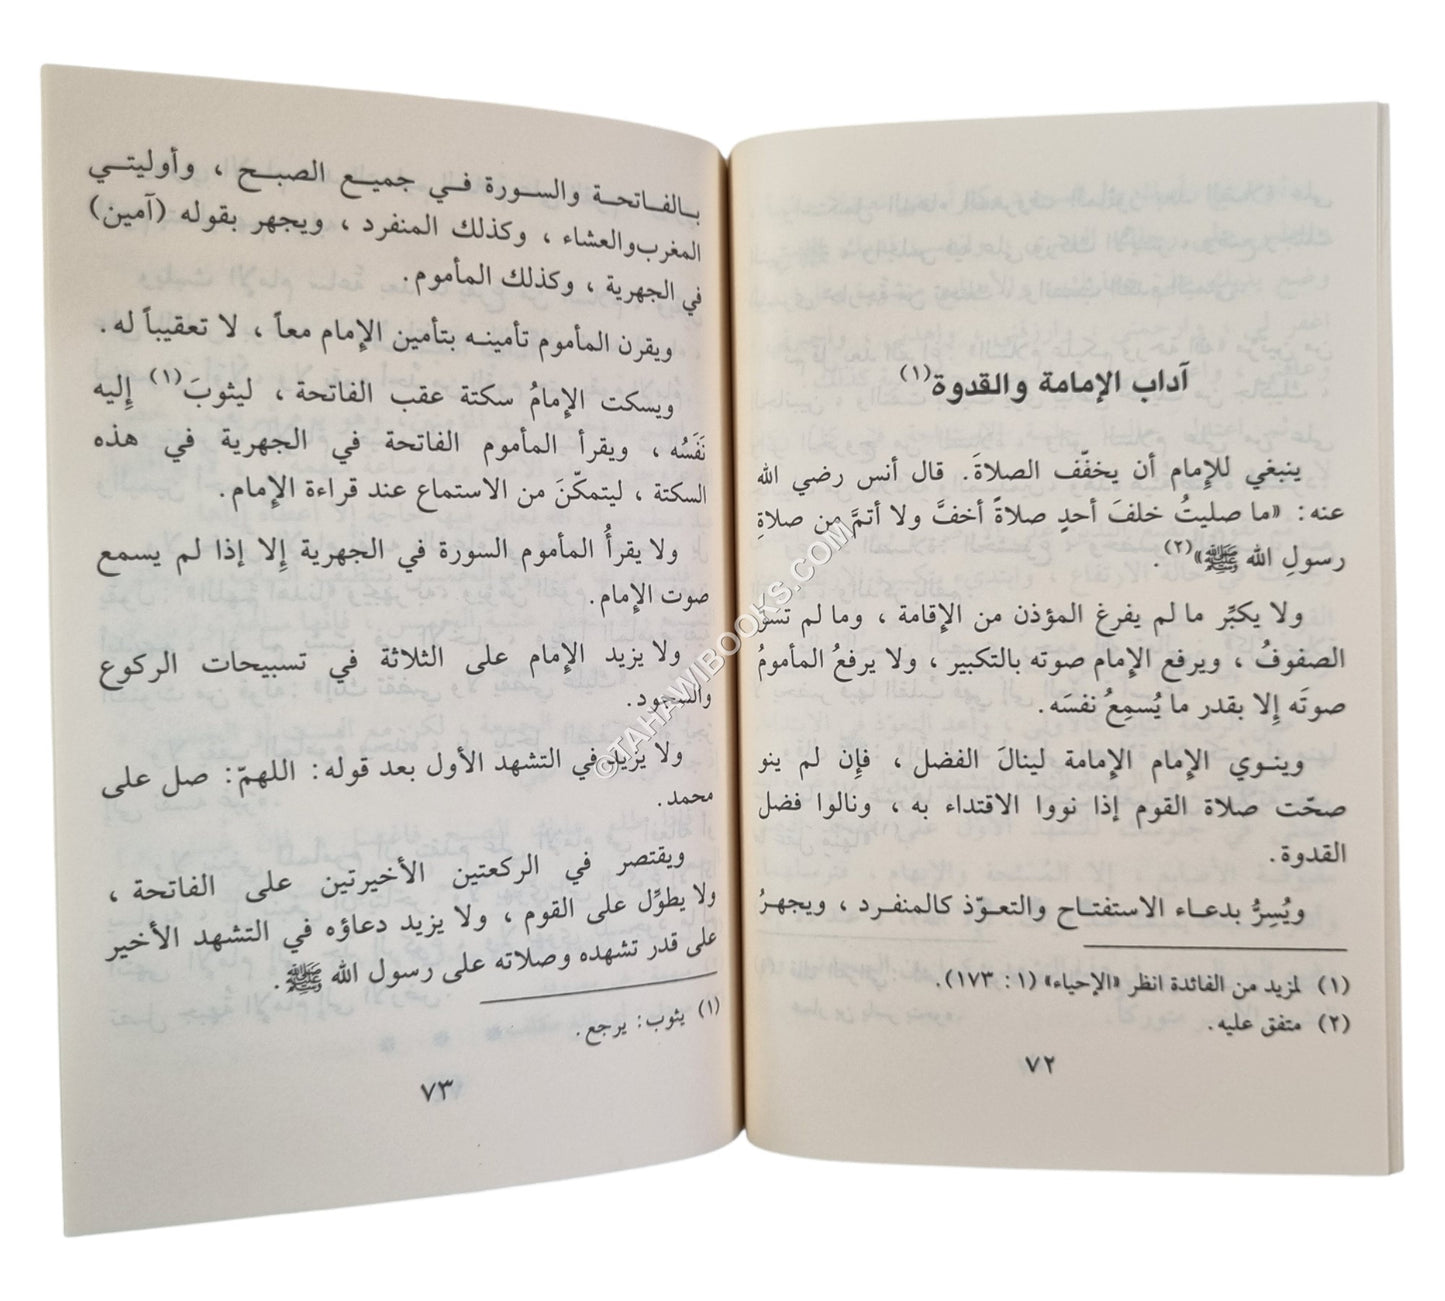 آداب الإمامة والقدوة(١)
ينبغي للإمام أن يخفّف الصلاةَ. قال أنس رضي الله
عنه: «ما صليتُ خلفَ أحدٍ صلاةً أخفَّ ولا أتمَّ من صلاةِ
رسولِ الله ﷺ»(٢).
ولا يكبِّر ما لم يفرغ المؤذن من الإقامة ، وما لم تسوَّ
الصفوفُ ، ويرفع الإمام صوته بالتكبير ، ولا يرفعُ المأمومُ
صوتَه إلا بقدر ما يُسمِعُ نفسَه.
وينوي الإمام الإمامة لينالَ الفضل ، فإن لم ينو
صحّت صلاة القوم إذا نووا الاقتداء به ، ونالوا فضل
القدوة.
ويُسِرُّ بدعاء الاستفتاح والتعوّذ كالمنفرد ، ويجهرُ
(١) لمزيد من الفائدة انظر «الإحياء» (١ : ١٧٣).
(٢) متفق عليه.
٧٢
بالفاتحة والسورة في جميع الصبح ، وأوليتي
المغرب والعشاء ، وكذلك المنفرد ، ويجهر بقوله (آمين)
في الجهرية ، وكذلك المأموم.
ويقرن المأموم تأمينه بتأمين الإمام معاً ، لا تعقيباً له.
ويسكت الإمامُ سكتة عقب الفاتحة ، ليثوبَ(١) إليه
نَفَسُه ، ويقرأ المأموم الفاتحة في الجهرية في هذه
السكتة ، ليتمكّنَ من الاستماع عند قراءة الإمام.
ولا يقرأُ المأموم السورة في الجهرية إلا إذا لم يسمع
صوت الإمام.
ولا يزيد الإمام على الثلاثة في تسبيحات الركوع
والسجود.
ولا يزيد في التشهد الأول بعد قوله: اللهمّ: صل على
محمد.
ويقتصر في الركعتين الأخيرتين على الفاتحة ،
ولا يطوِّل على القوم ، ولا يزيد دعاؤه في التشهد الأخير
على قدر تشهده وصلاته على رسول الله ﷺ.
(١) يثوب: يرجع.
٧٣
©TAHAWIBOOKS.COM